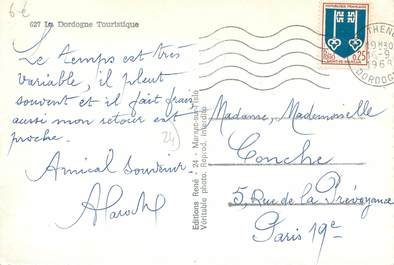 6€
627 La Dordogne Touristique
Le temps est très
variable, il pleut
souvent et il fait frais
aussi mon retour est
proche.
Amical Souvenir
24
Editions René - 24 - Marsac-sur-Isle
Véritable photo. Reprod. interdite
REPUBLIQUE FRANÇAISE
0,25
19H30
-9
1968
DORDOGNE
Madame, Mademoiselle
Conche
5, Rue de la Prévoyance
Paris 19e